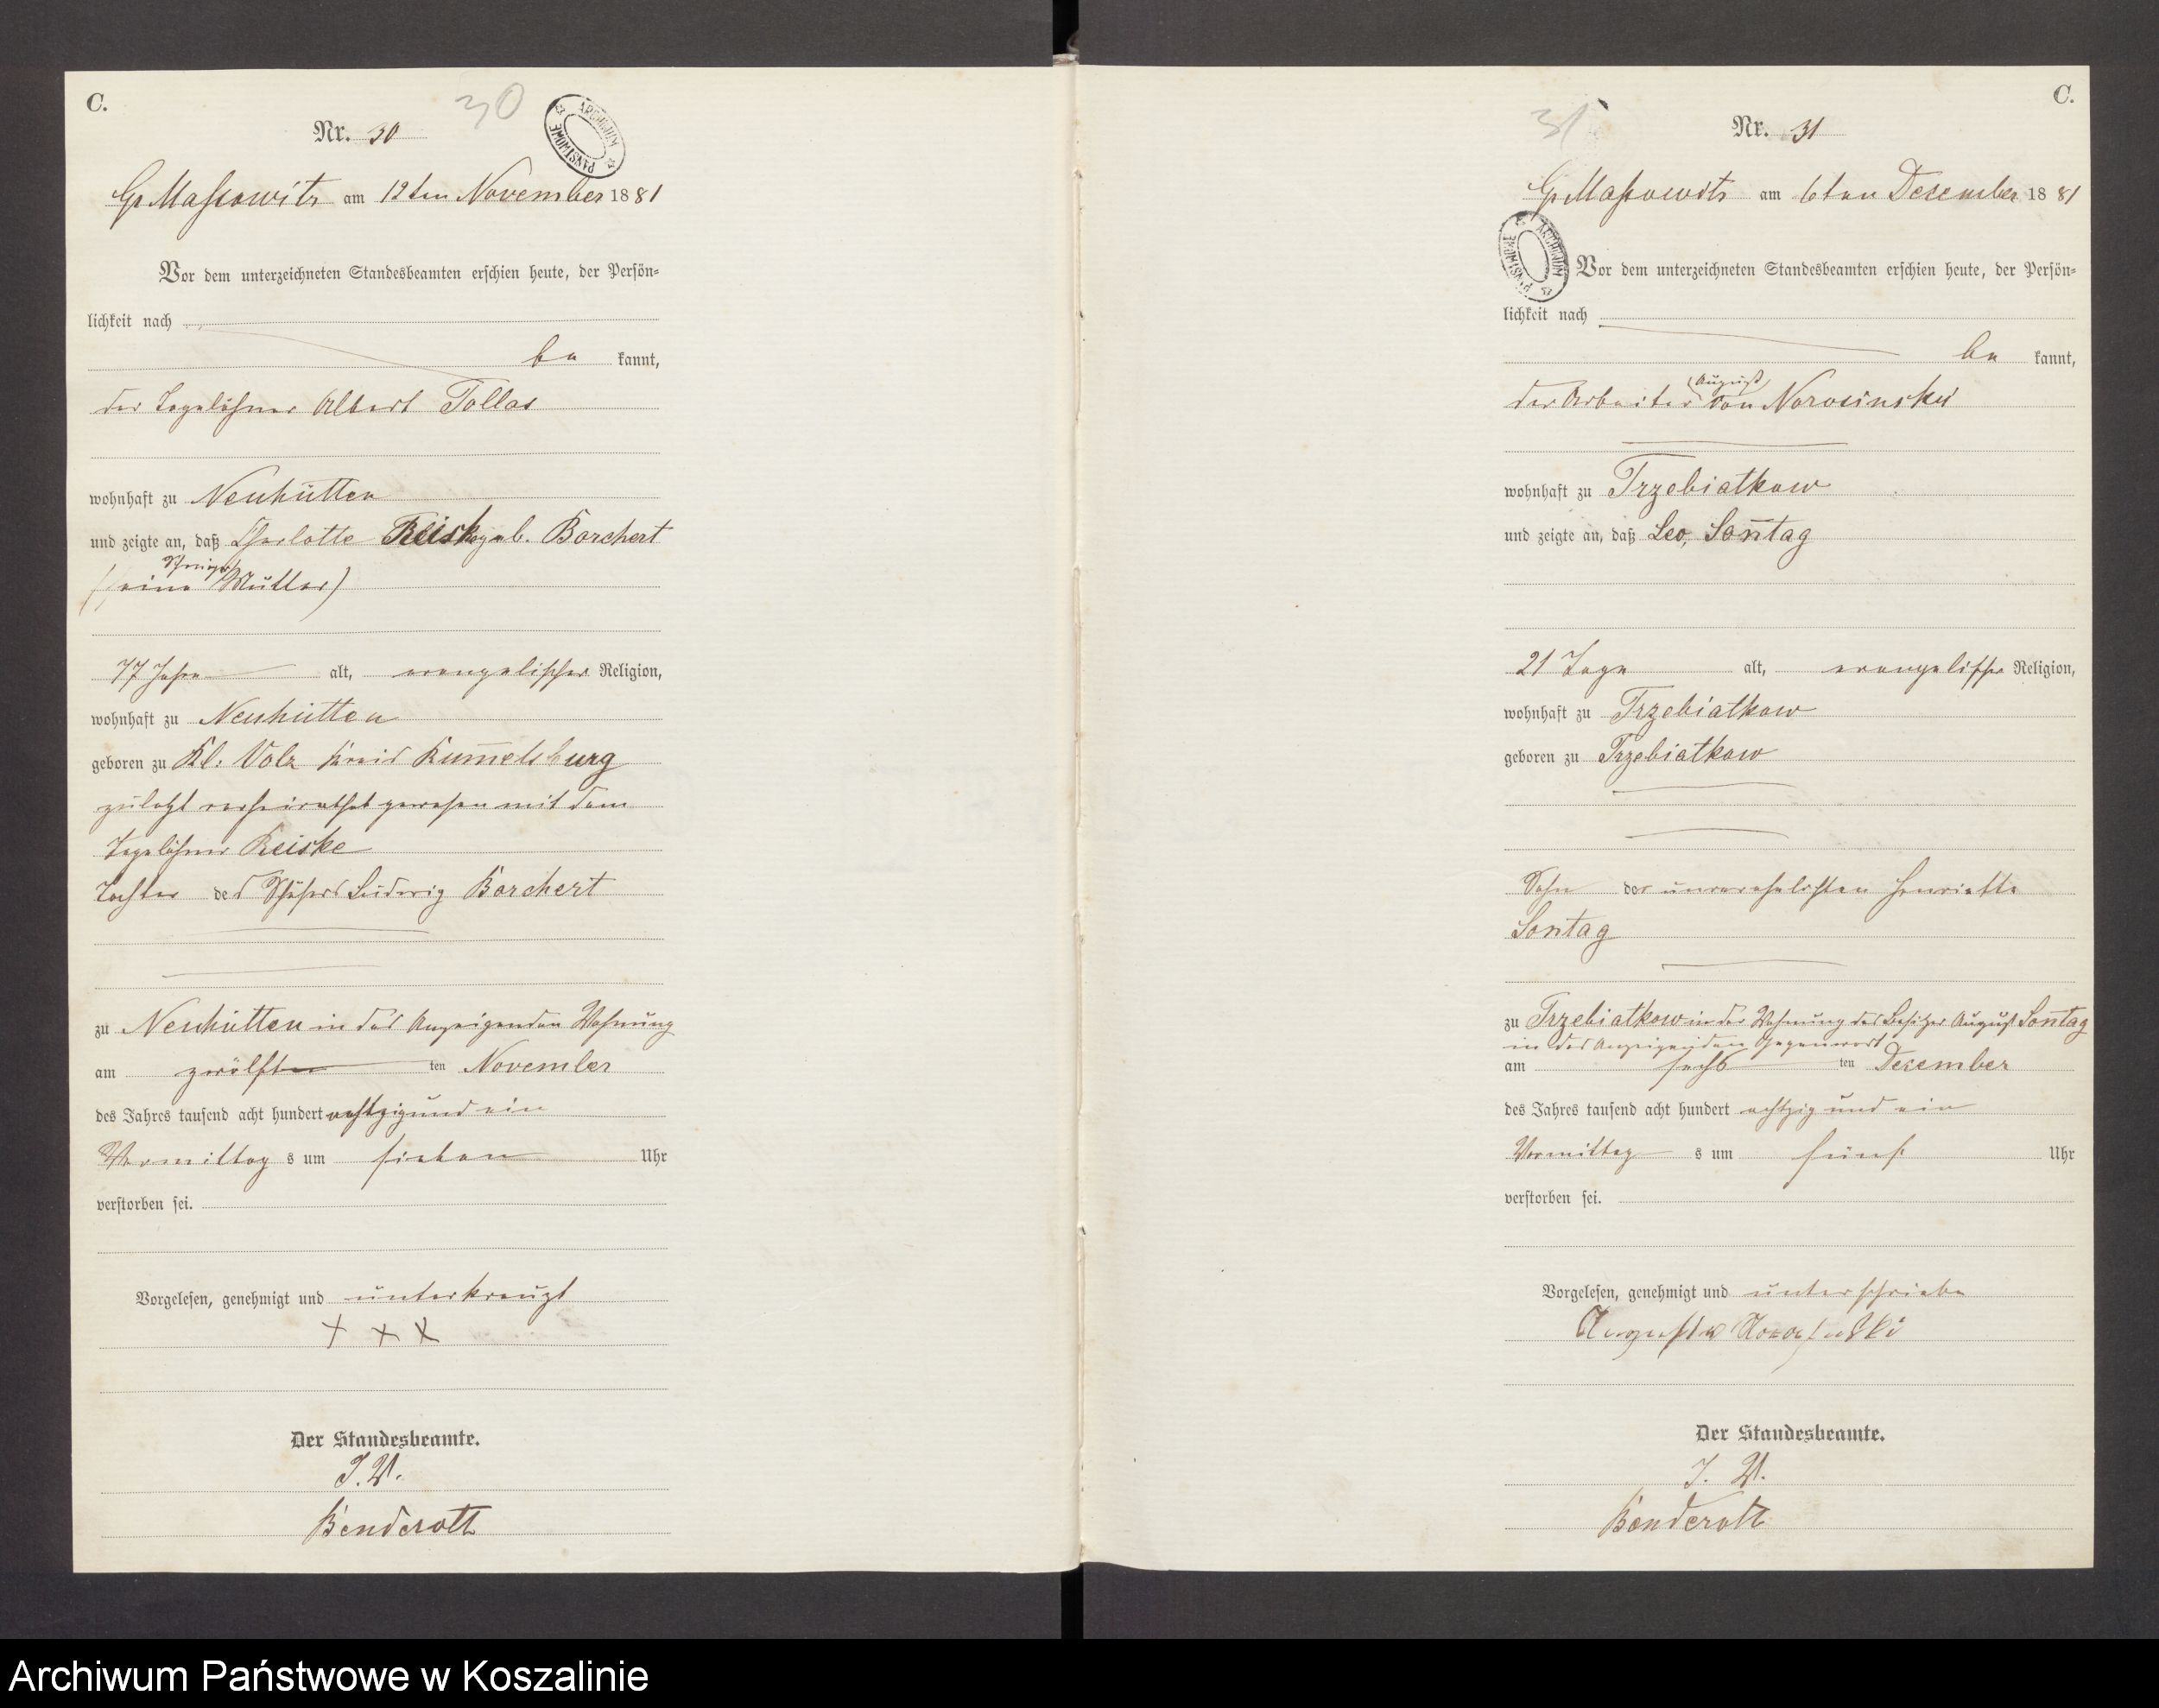 C.
30
Nr. 30
ARCHIWUM PAŃSTWOWE
Gr Massowitz am 12ten November 1881
Vor dem unterzeichneten Standesbeamten erschien heute, der Persön-
lichkeit nach
be kannt,
der Tagelöhner Albert Tollas
wohnhaft zu Neuhütten
und zeigte an, daß Charlotte Reiske geb. Borchert
Schwieger
(seine Mutter)
77 Jahre alt, evangelischer Religion,
wohnhaft zu Neuhütten
geboren zu Kl. Volz Kreis Rum̄elsburg
zuletzt verheirathet gewesen mit dem
Tagelöhner Reiske
Tochter des Schäfers Ludwig Borchert
zu Neuhütten in des Anzeigenden Wohnung
am zwölften ten November
des Jahres tausend acht hundert achtzig und ein
Vormittag s um sieben Uhr
verstorben sei.
Vorgelesen, genehmigt und unterkreuzt
+ + +
Der Standesbeamte.
J. V.
Benderott
C.
31
Nr. 31
Gr Massowitz am 6ten December 1881
ARCHIWUM PAŃSTWOWE
Vor dem unterzeichneten Standesbeamten erschien heute, der Persön-
lichkeit nach
be kannt,
(August)
der Arbeiter von Norosinski
wohnhaft zu Trzebiatkow
und zeigte an, daß Leo, Son̄tag
21 Tage alt, evangelischer Religion,
wohnhaft zu Trzebiatkow
geboren zu Trzebiatkow
Sohn der unverehelichten Henriette
Son̄tag
zu Trzebiatkow in der Wohnung des Besitzer August Son̄tag
in des Anzeigenden Gegenwart
am sechs ten December
des Jahres tausend acht hundert achtzig und ein
Vormittag s um fünf Uhr
verstorben sei.
Vorgelesen, genehmigt und unterschrieben
August v
Der Standesbeamte.
J. V.
Benderott
Archiwum Państwowe w Koszalinie